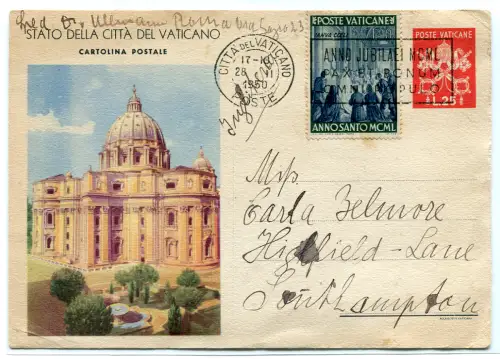 Ullmann Roma Via 23
STATO DELLA CITTÀ DEL VATICANO
CARTOLINA POSTALE
CITTÀ DEL VATICANO
17-18
28 VI
1950
POSTE
POSTE VATICANE
JANUA COELI
ANNO SANTO MCML
ANNO JUBILAEI MCML
PAX ET BONUM
OMNI POPULO
POSTE VATICANE
L.25
Inghilterra
Miss
Carla Belmore
Highfield-Lane
Southampton